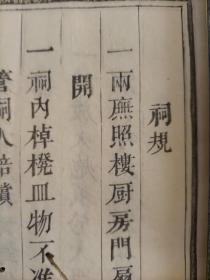 祠規
一兩廡照樓厨房門扇
開
一祠內棹櫈皿物不准
管祠人賠償